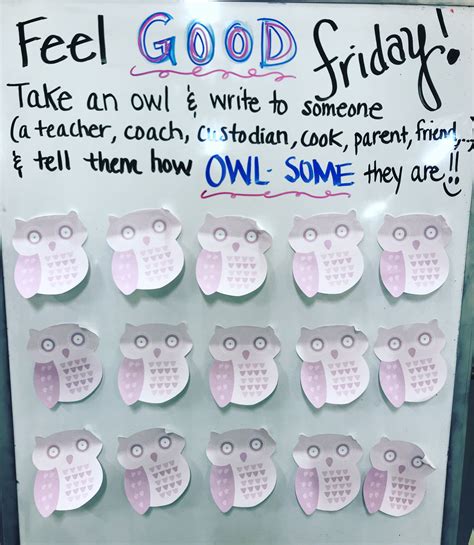 Feel GOOD friday!
Take an owl & write to someone
(a teacher, coach, custodian, cook, parent, friend,...)
& tell them how OWL-SOME they are!!